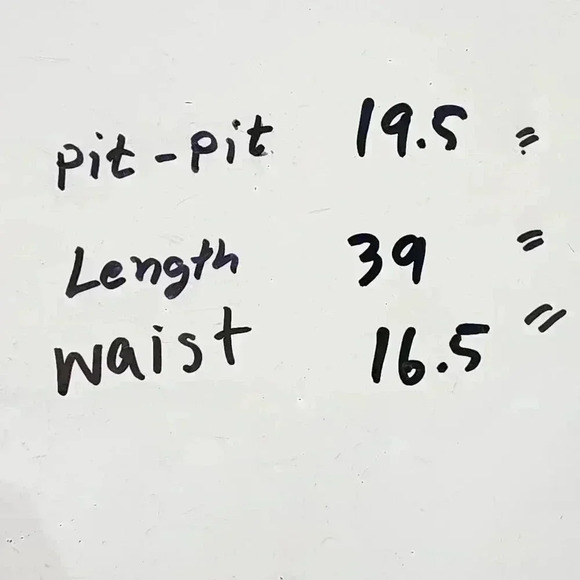 pit-pit 19.5 "
Length 39 "
waist 16.5 "